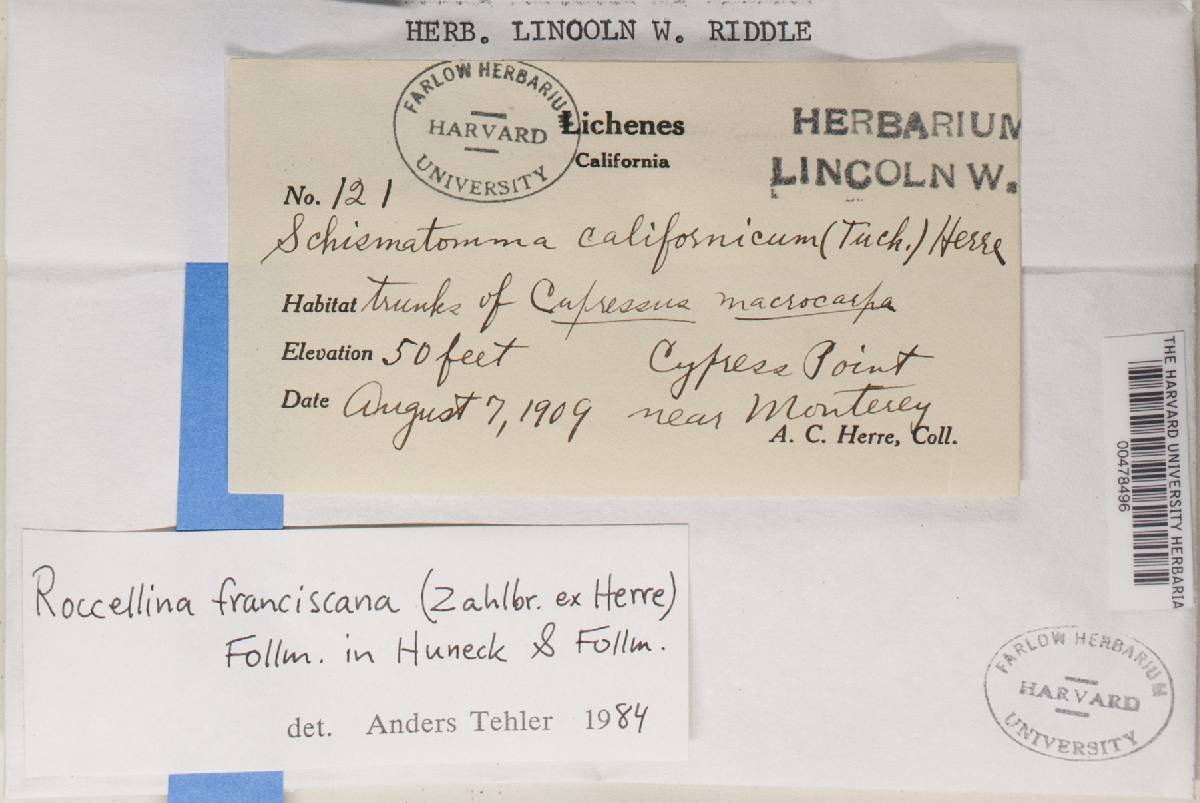 HERB. LINCOLN W. RIDDLE
FARLOW HERBARIUM
HARVARD
UNIVERSITY
Lichenes
California
HERBARIUM
LINCOLN W.
No. 121
Schismatomma californicum (Tuck.) Herre
Habitat trunks of Cupressus macrocarpa
Elevation 50 feet Cypress Point
Date August 7, 1909 near Monterey
A. C. Herre, Coll.
THE HARVARD UNIVERSITY HERBARIA
00478496
Roccellina franciscana (Zahlbr. ex Herre)
Follm. in Huneck & Follm.
det. Anders Tehler 1984
FARLOW HERBARIUM
HARVARD
UNIVERSITY